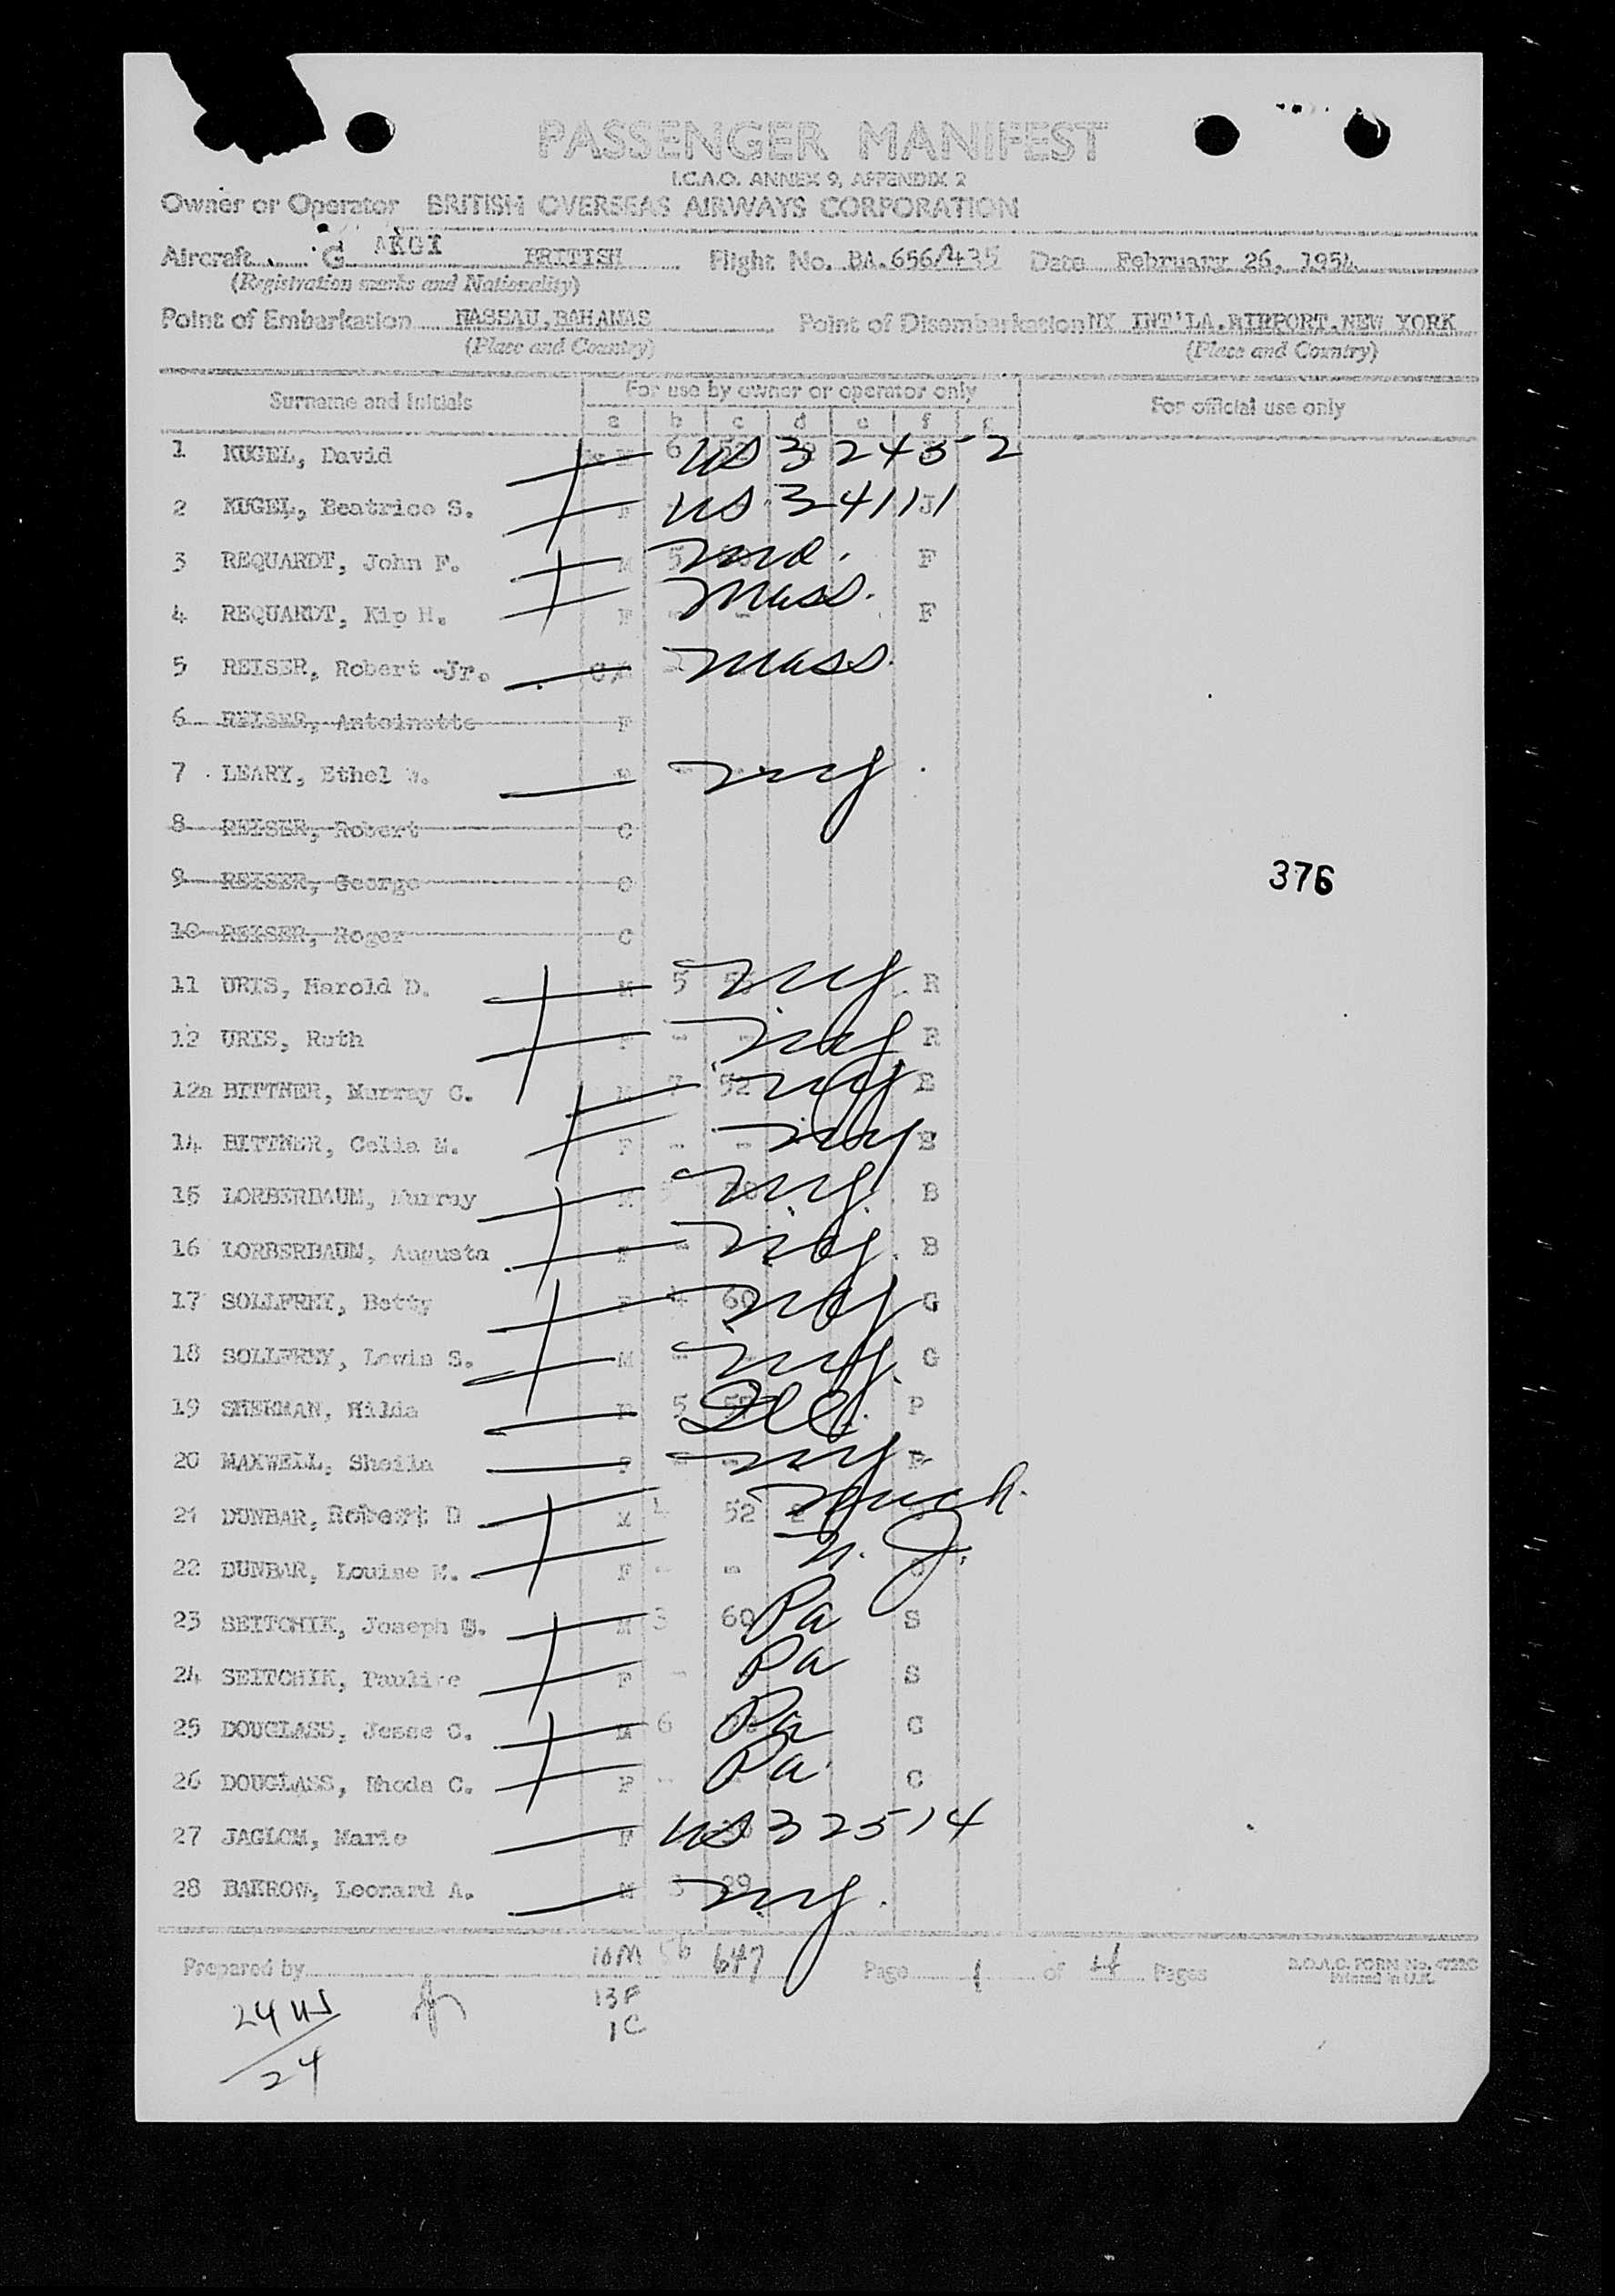 PASSENGER MANIFEST
I.C.A.O. ANNEX 9, APPENDIX 2
Owner or Operator BRITISH OVERSEAS AIRWAYS CORPORATION
Aircraft G BRITISH Flight No. BA.656/435 Date February 26, 1954
(Registration marks and Nationality)
Point of Embarkation NASSAU, BAHAMAS Point of Disembarkation NY INT'LA.AIRPORT.NEW YORK
(Place and Country) (Place and Country)
Surname and Initials For use by owner or operator only For official use only
a b c d e f g
1 KUGEL, David 6 US 324352
2 KUGEL, Beatrice S. F US 34111 J
3 REQUARDT, John F. M 5 md. F
4 REQUARDT, Kip H. F - - Mass. F
5 REISER, Robert Jr. Mass.
6 REISER, Antoinette F
7 LEARY, Ethel W. F - ny
8 REISER, Robert C
9 REISER, George C
376
10 REISER, Roger C
11 URIS, Harold D. M 5 ny R
12 URIS, Ruth F - - ny R
12a BITTNER, Murray C. M 7 52 ny B
14 BITTNER, Celia M. F - - ny B
15 LORBERBAUM, Murray M ny B
16 LORBERBAUM, Augusta F - ny B
17 SOLLFREY, Betty F 4 60 ny G
18 SOLLFREY, Lewis S. M - ny G
19 SHERMAN, Hilda F 5 Ill. P
20 MAXWELL, Sheila F - - ny P
21 DUNBAR, Robert D M 4 52 Mich.
22 DUNBAR, Louise M. F - - N. J.
23 SEITCHIK, Joseph M 3 60 Pa S
24 SEITCHIK, Pauline F - Pa S
25 DOUGLASS, Jesse C. M 6 Pa C
26 DOUGLASS, Rhoda C. F - Pa C
27 JAGLOM, Marie F US 32514
28 BAKROW, Leonard A. M 3 29 ny
Prepared by 10M 56 647 Page 1 of 4 Pages B.O.A.C. FORM No.
Printed in U.K.
24 US 13F
1C
24